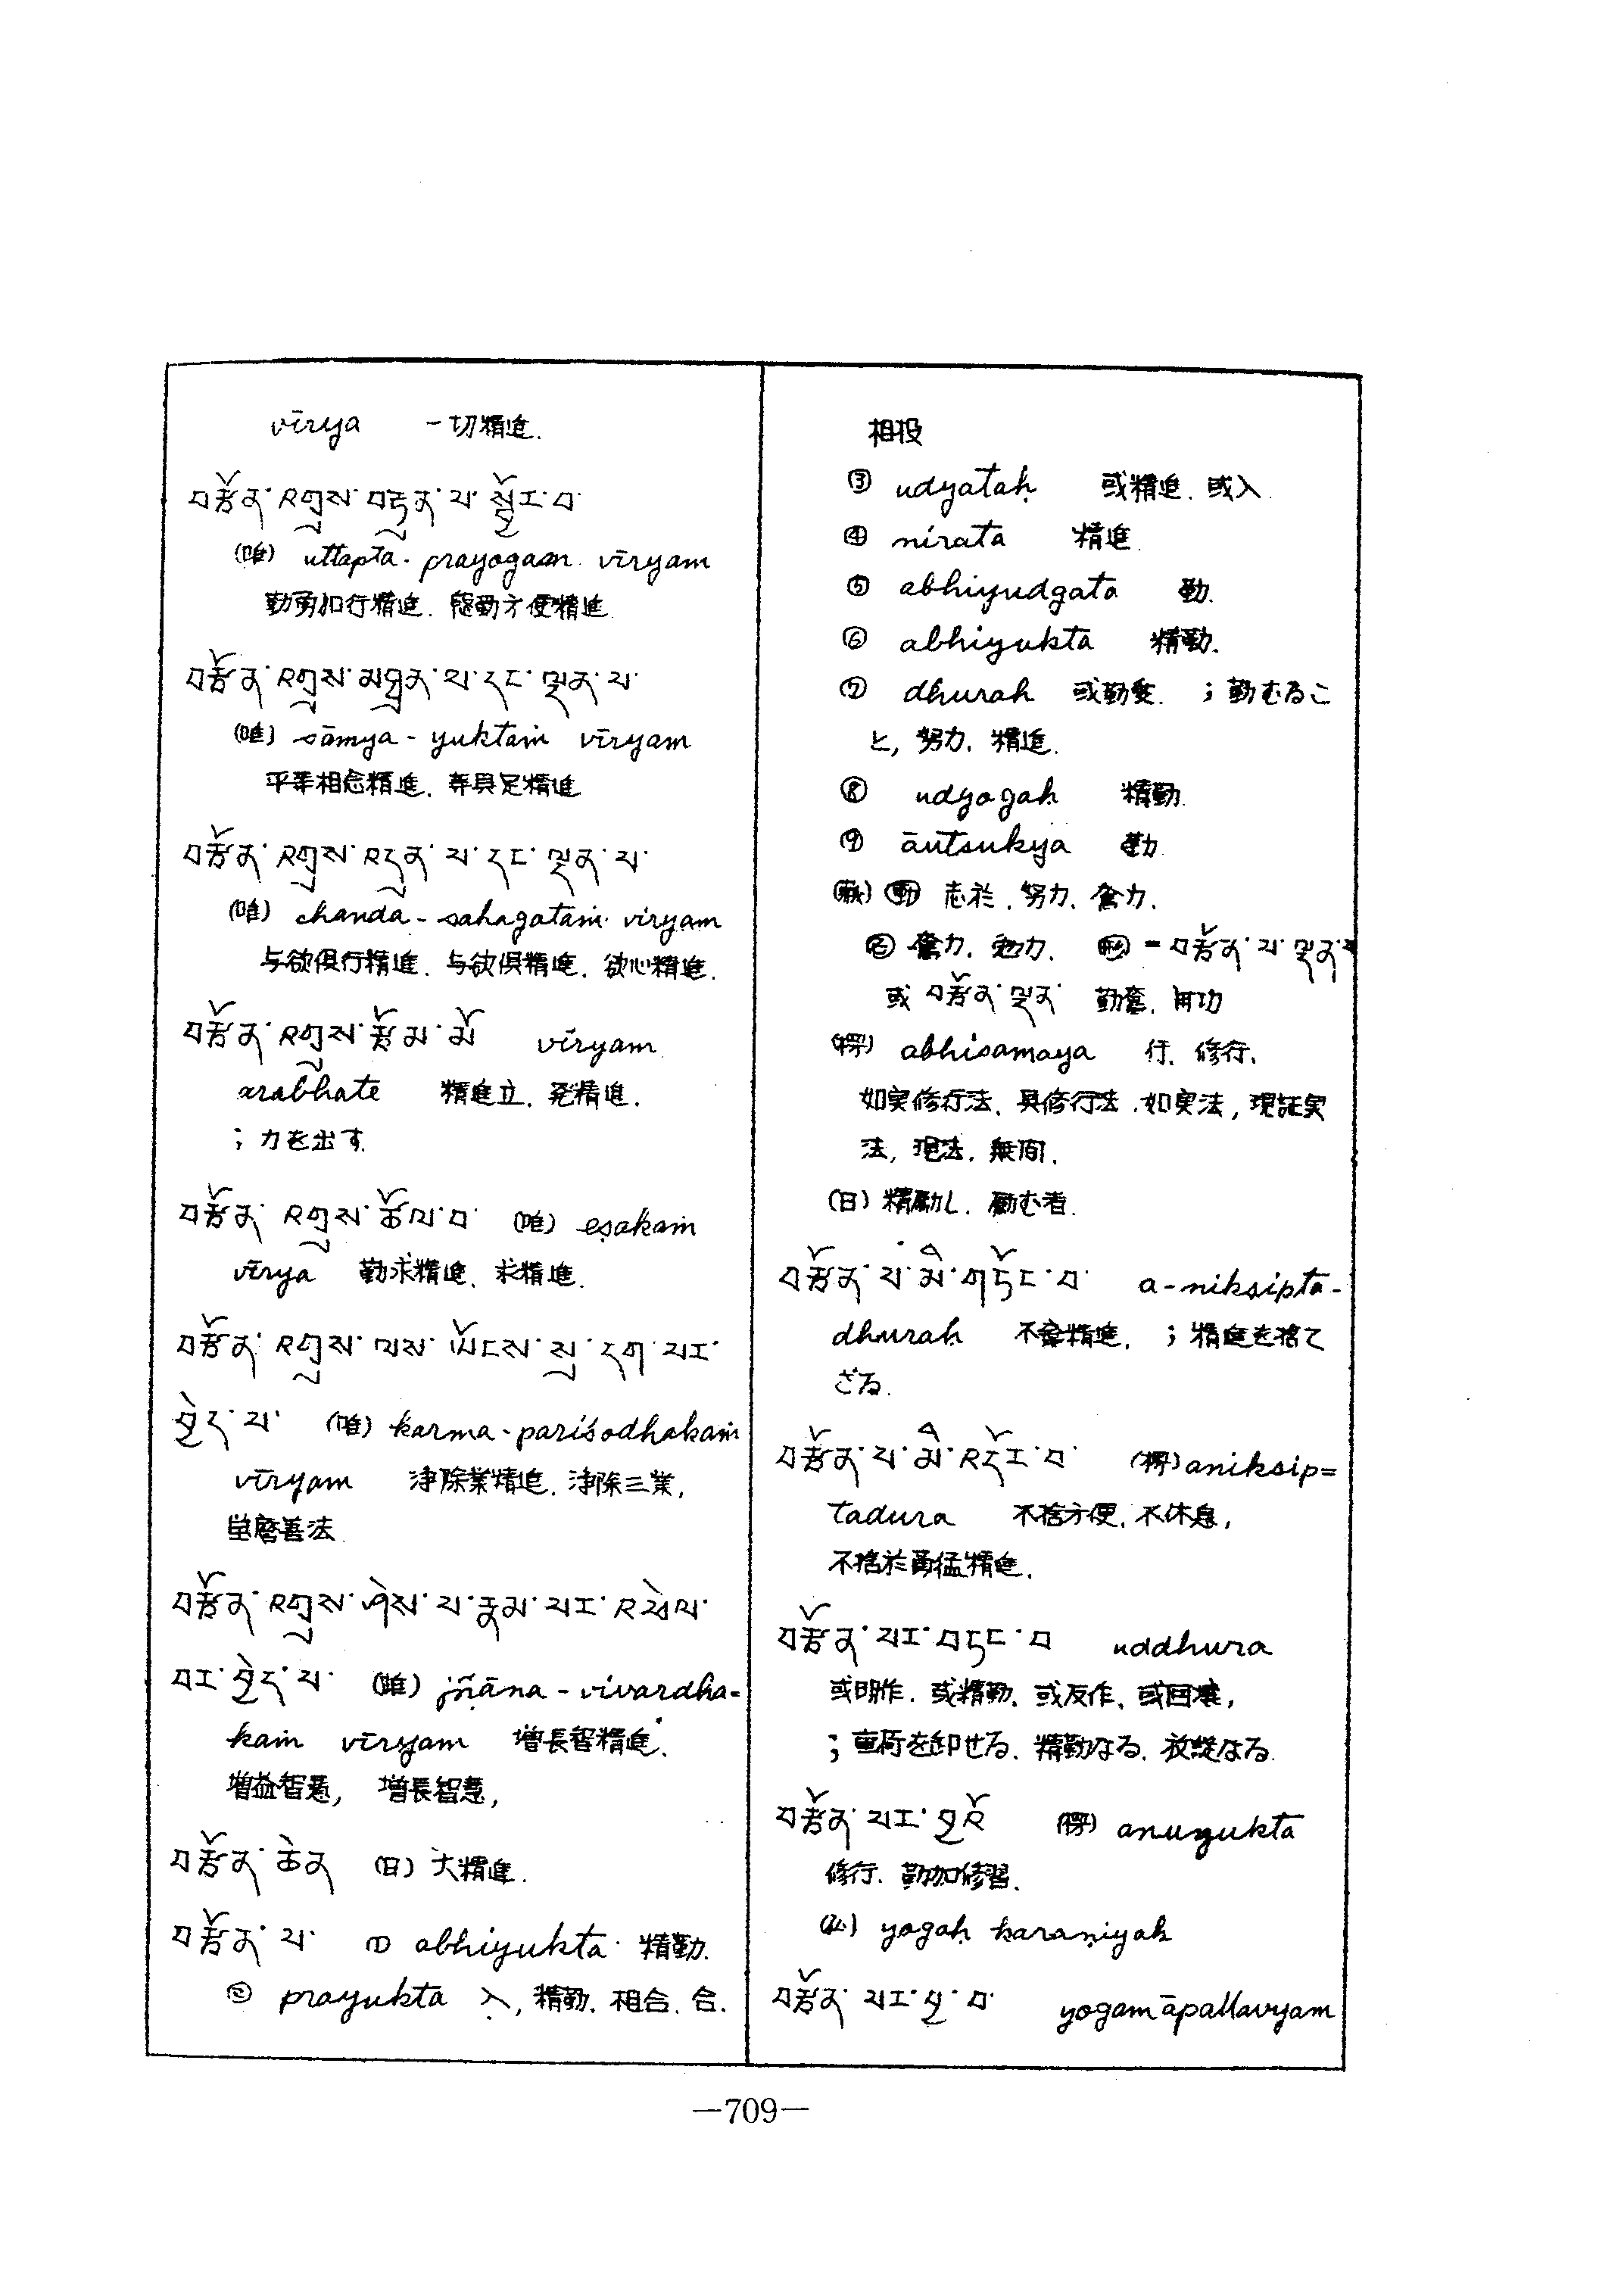 vīrya 一切精進.
བརྩོན་འགྲུས་བརྟན་པ་སྦྱོར་བ་
(唯) uttapta-prayogam vīryam
勤勇加行精進. 駆勤方便精進
བརྩོན་འགྲུས་མཉྫན་པ་དང་ལྡན་པ་
(唯) sāmya-yuktaṁ vīryam
平等相応精進. 等具足精進
བརྩོན་འགྲུས་འདུན་པ་དང་ལྡན་པ་
(唯) chanda-sahagataṁ vīryam
与欲俱行精進. 与欲俱精進. 欲心精進.
བརྩོན་འགྲུས་རྩོམ་མོ vīryam
arabhate 精進立. 発精進.
; 力を出す.
བརྩོན་འགྲུས་ཚོལ་བ་ (唯) eṣakaṁ
vīrya 勤求精進. 求精進.
བརྩོན་འགྲུས་ལས་ཡོངས་སུ་དག་པར་
བྱེད་པ་ (唯) karma-pariśodhakaṁ
vīryam 淨除業精進. 淨除三業,
瑩磨善法.
བརྩོན་འགྲུས་ཤེས་པ་རྣམ་པར་འཕེལ་
བར་བྱེད་པ་ (唯) jñāna-vivardha=
kaṁ vīryam 增長智精進.
增益智慧, 增長智慧,
བརྩོན་ཆེན (日) 大精進.
བརྩོན་པ་ ① abhiyukta 精勤.
② prayukta 入, 精勤. 相合. 合.
相投
③ udyataḥ 或精進. 或入.
④ nirata 精進.
⑤ abhiyudgata 勤.
⑥ abhiyukta 精勤.
⑦ dhuraḥ 或勤發. ; 勤むるこ
と, 努力. 精進.
⑧ udyogaḥ 精勤.
⑨ āutsukya 勤
(蔵) 動 志於. 努力. 奮力.
名 奮力. 勉力. 形 = བརྩོན་པ་ལྡན་པ
或 བརྩོན་ལྡན་ 勤奮. 用功
abhisamaya 行. 修行.
如実修行法. 具修行法. 如実法, 現証実
法, 現法. 無間.
(日) 精励し. 励む者.
བརྩོན་པ་མི་གཏོང་བ་ a-niksipta-
dhuraḥ 不舍精進. ; 精進を捨て
ざる.
བརྩོན་པ་མི་འདོར་བ་ aniksip=
tadura 不捨方便. 不休息,
不捨於勇猛精進.
བརྩོན་པར་བཏང་བ uddhura
或明作. 或精勤. 或反作. 或回壊,
; 重荷を卸せる. 精勤なる. 放逸なる.
བརྩོན་པར་བྱའོ anuyukta
修行. 勤加修習.
yogaḥ karaṇiyaḥ
བརྩོན་པར་བྱ་བ་ yogamāpallavyam
—709—